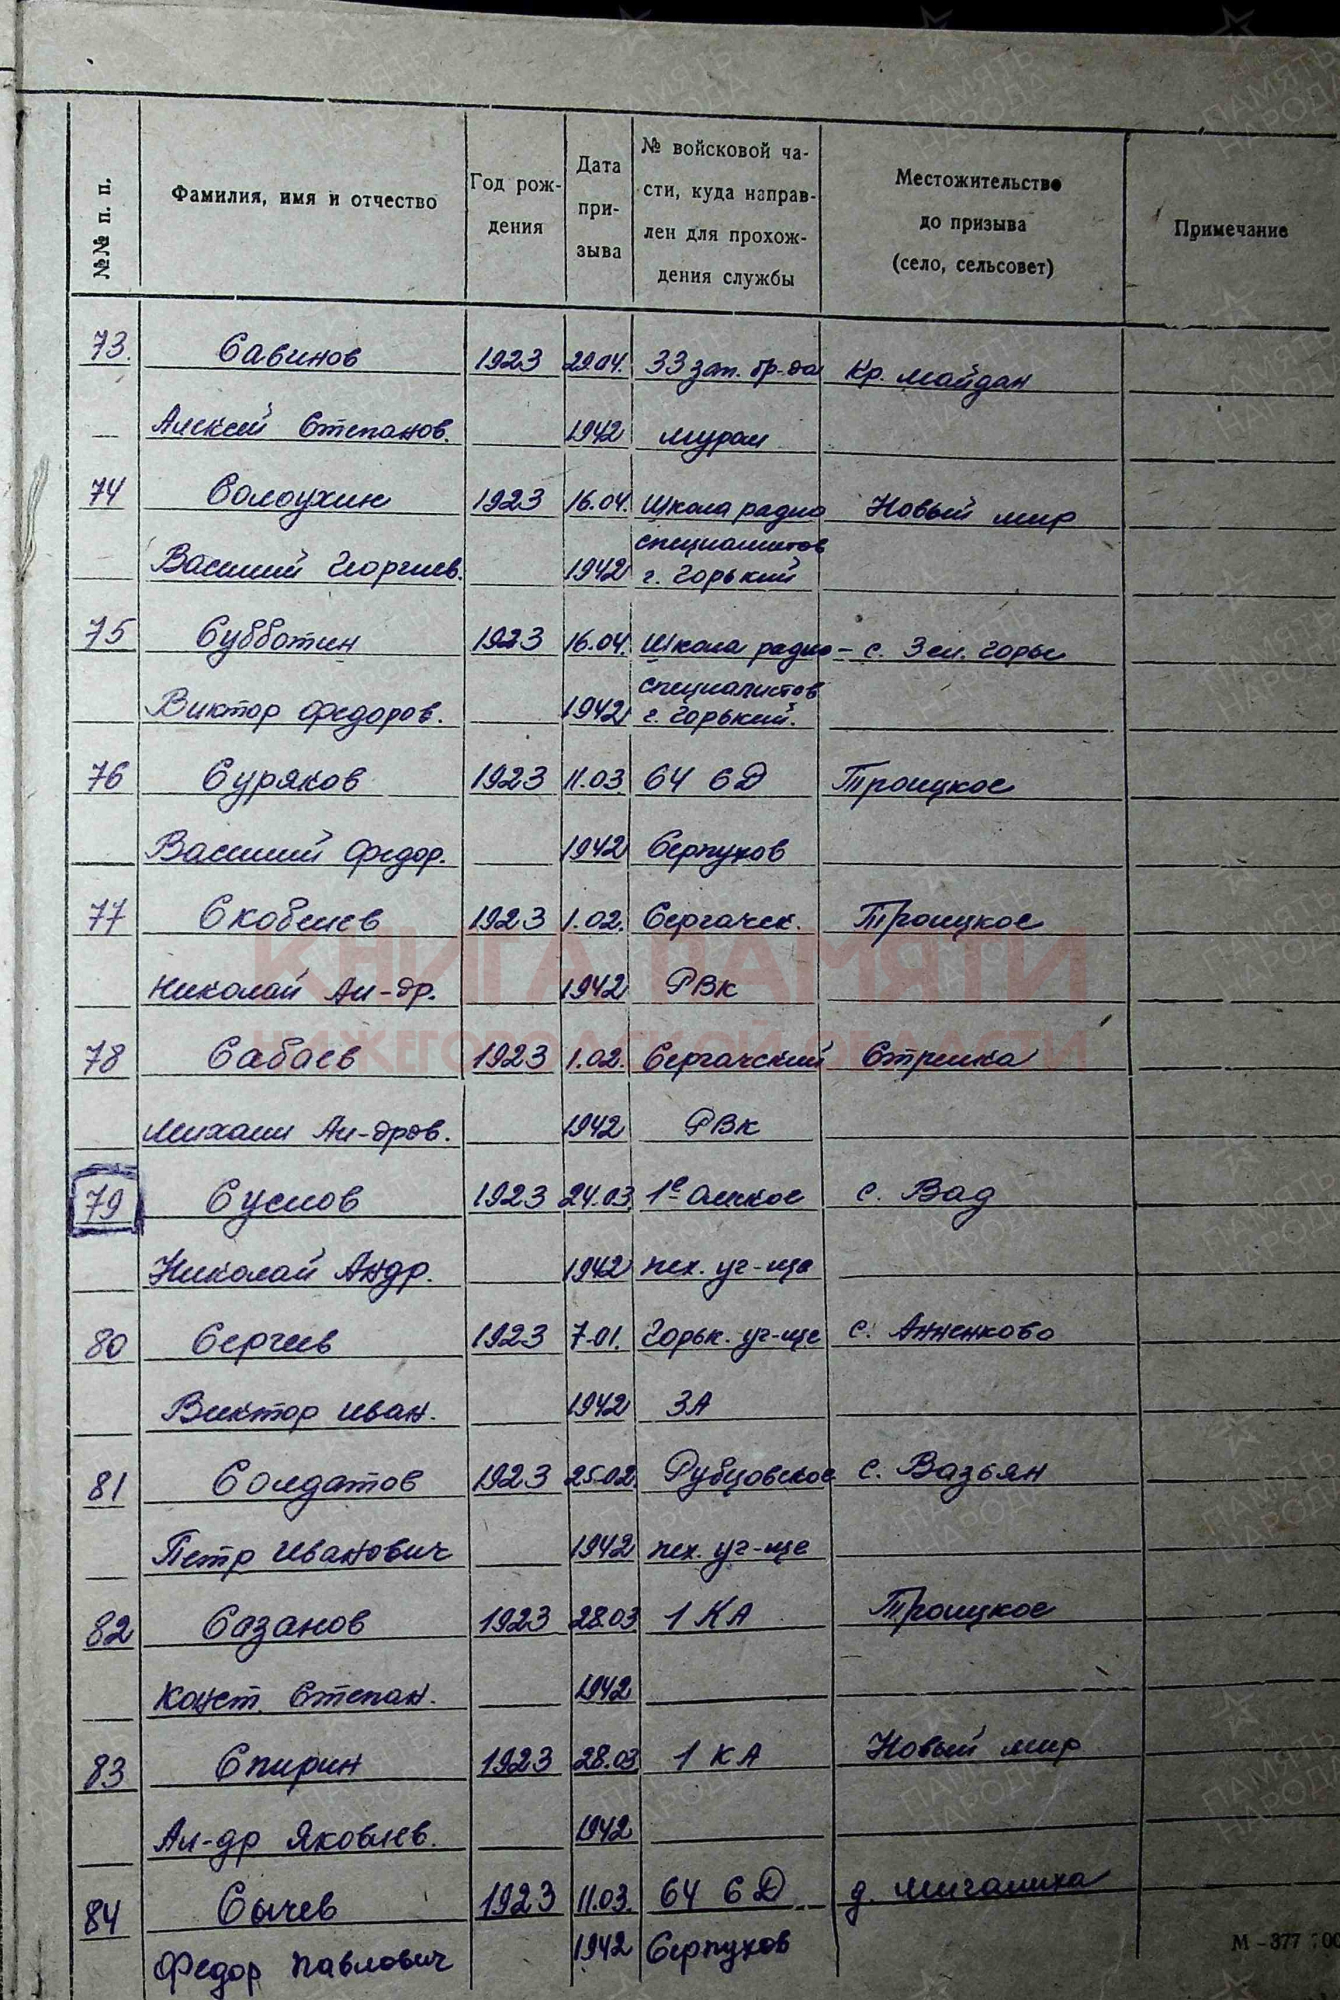 №№ п. п.
Фамилия, имя и отчество
Год рож-
дения
Дата
при-
зыва
№ войсковой ча-
сти, куда направ-
лен для прохож-
дения службы
Местожительство
до призыва
(село, сельсовет)
Примечание
73. Савинов 1923 29.04. 33 зап. бр-да Кр. Майдан
Алексей Степанов. 1942 Муром
74 Солоухин 1923 16.04. Школа радио Новый мир
специалистов
Василий Георгиев. 1942 г. Горький
75 Субботин 1923 16.04. Школа радио- с. Зел. горы
специалистов
Виктор Федоров. 1942 г. Горький.
76 Суряков 1923 11.03 64 БД Троицкое
Василий Федор. 1942 Серпухов
77 Скобелев 1923 1.02. Сергачск. Троицкое
Николай Ал-др. 1942 РВК
78 Сабаев 1923 1.02. Сергачский Стрелка
Михаил Ал-дров. 1942 РВК
79 Суслов 1923 24.03. 1е Омское с. Вад
Николай Андр. 1942 пех. уч-ще
80 Сергеев 1923 7.01. Горьк. уч-ще с. Анненково
Виктор Иван. 1942 ЗА
81 Солдатов 1923 25.02. Рубцовское с. Вазьян
Петр Иванович 1942 пех. уч-ще
82 Сазанов 1923 28.03 1 КА Троицкое
Конст. Степан. 1942
83 Спирин 1923 28.03 1 КА Новый мир
Ал-др Яковлев. 1942
84 Сычев 1923 11.03. 64 БД д. Мигалиха
Федор Павлович 1942 Серпухов
М-377
КНИГА ПАМЯТИ
НИЖЕГОРОДСКОЙ ОБЛАСТИ
ПАМЯТЬ
НАРОДА